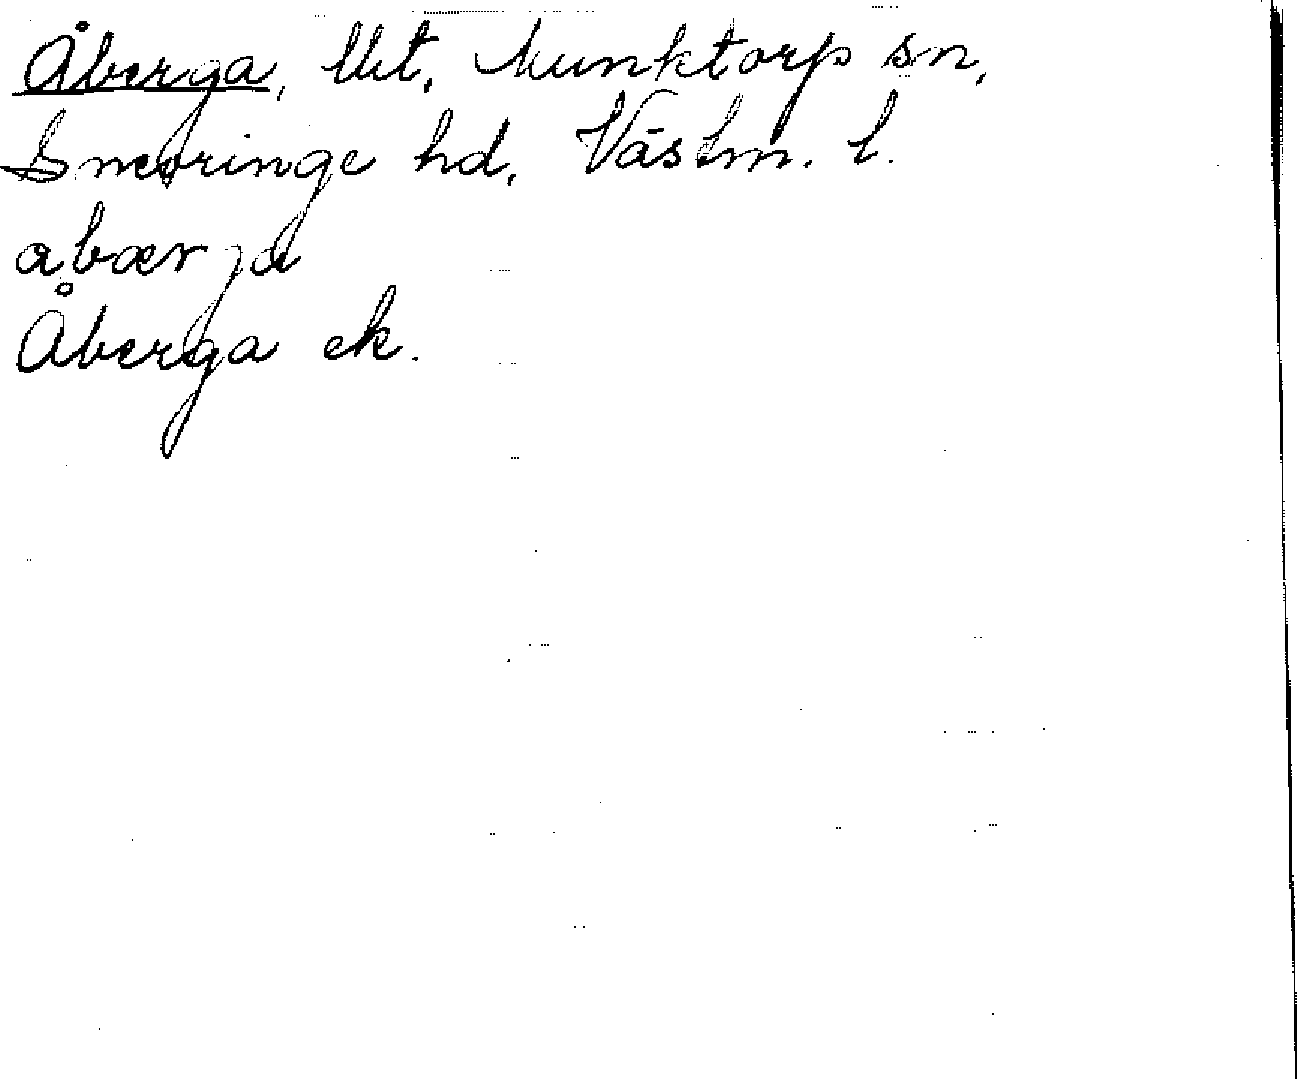 Åberga, Utt, Munktorp sn,
Snevringe hd, Västm. l.
abærja
Åberga ek.